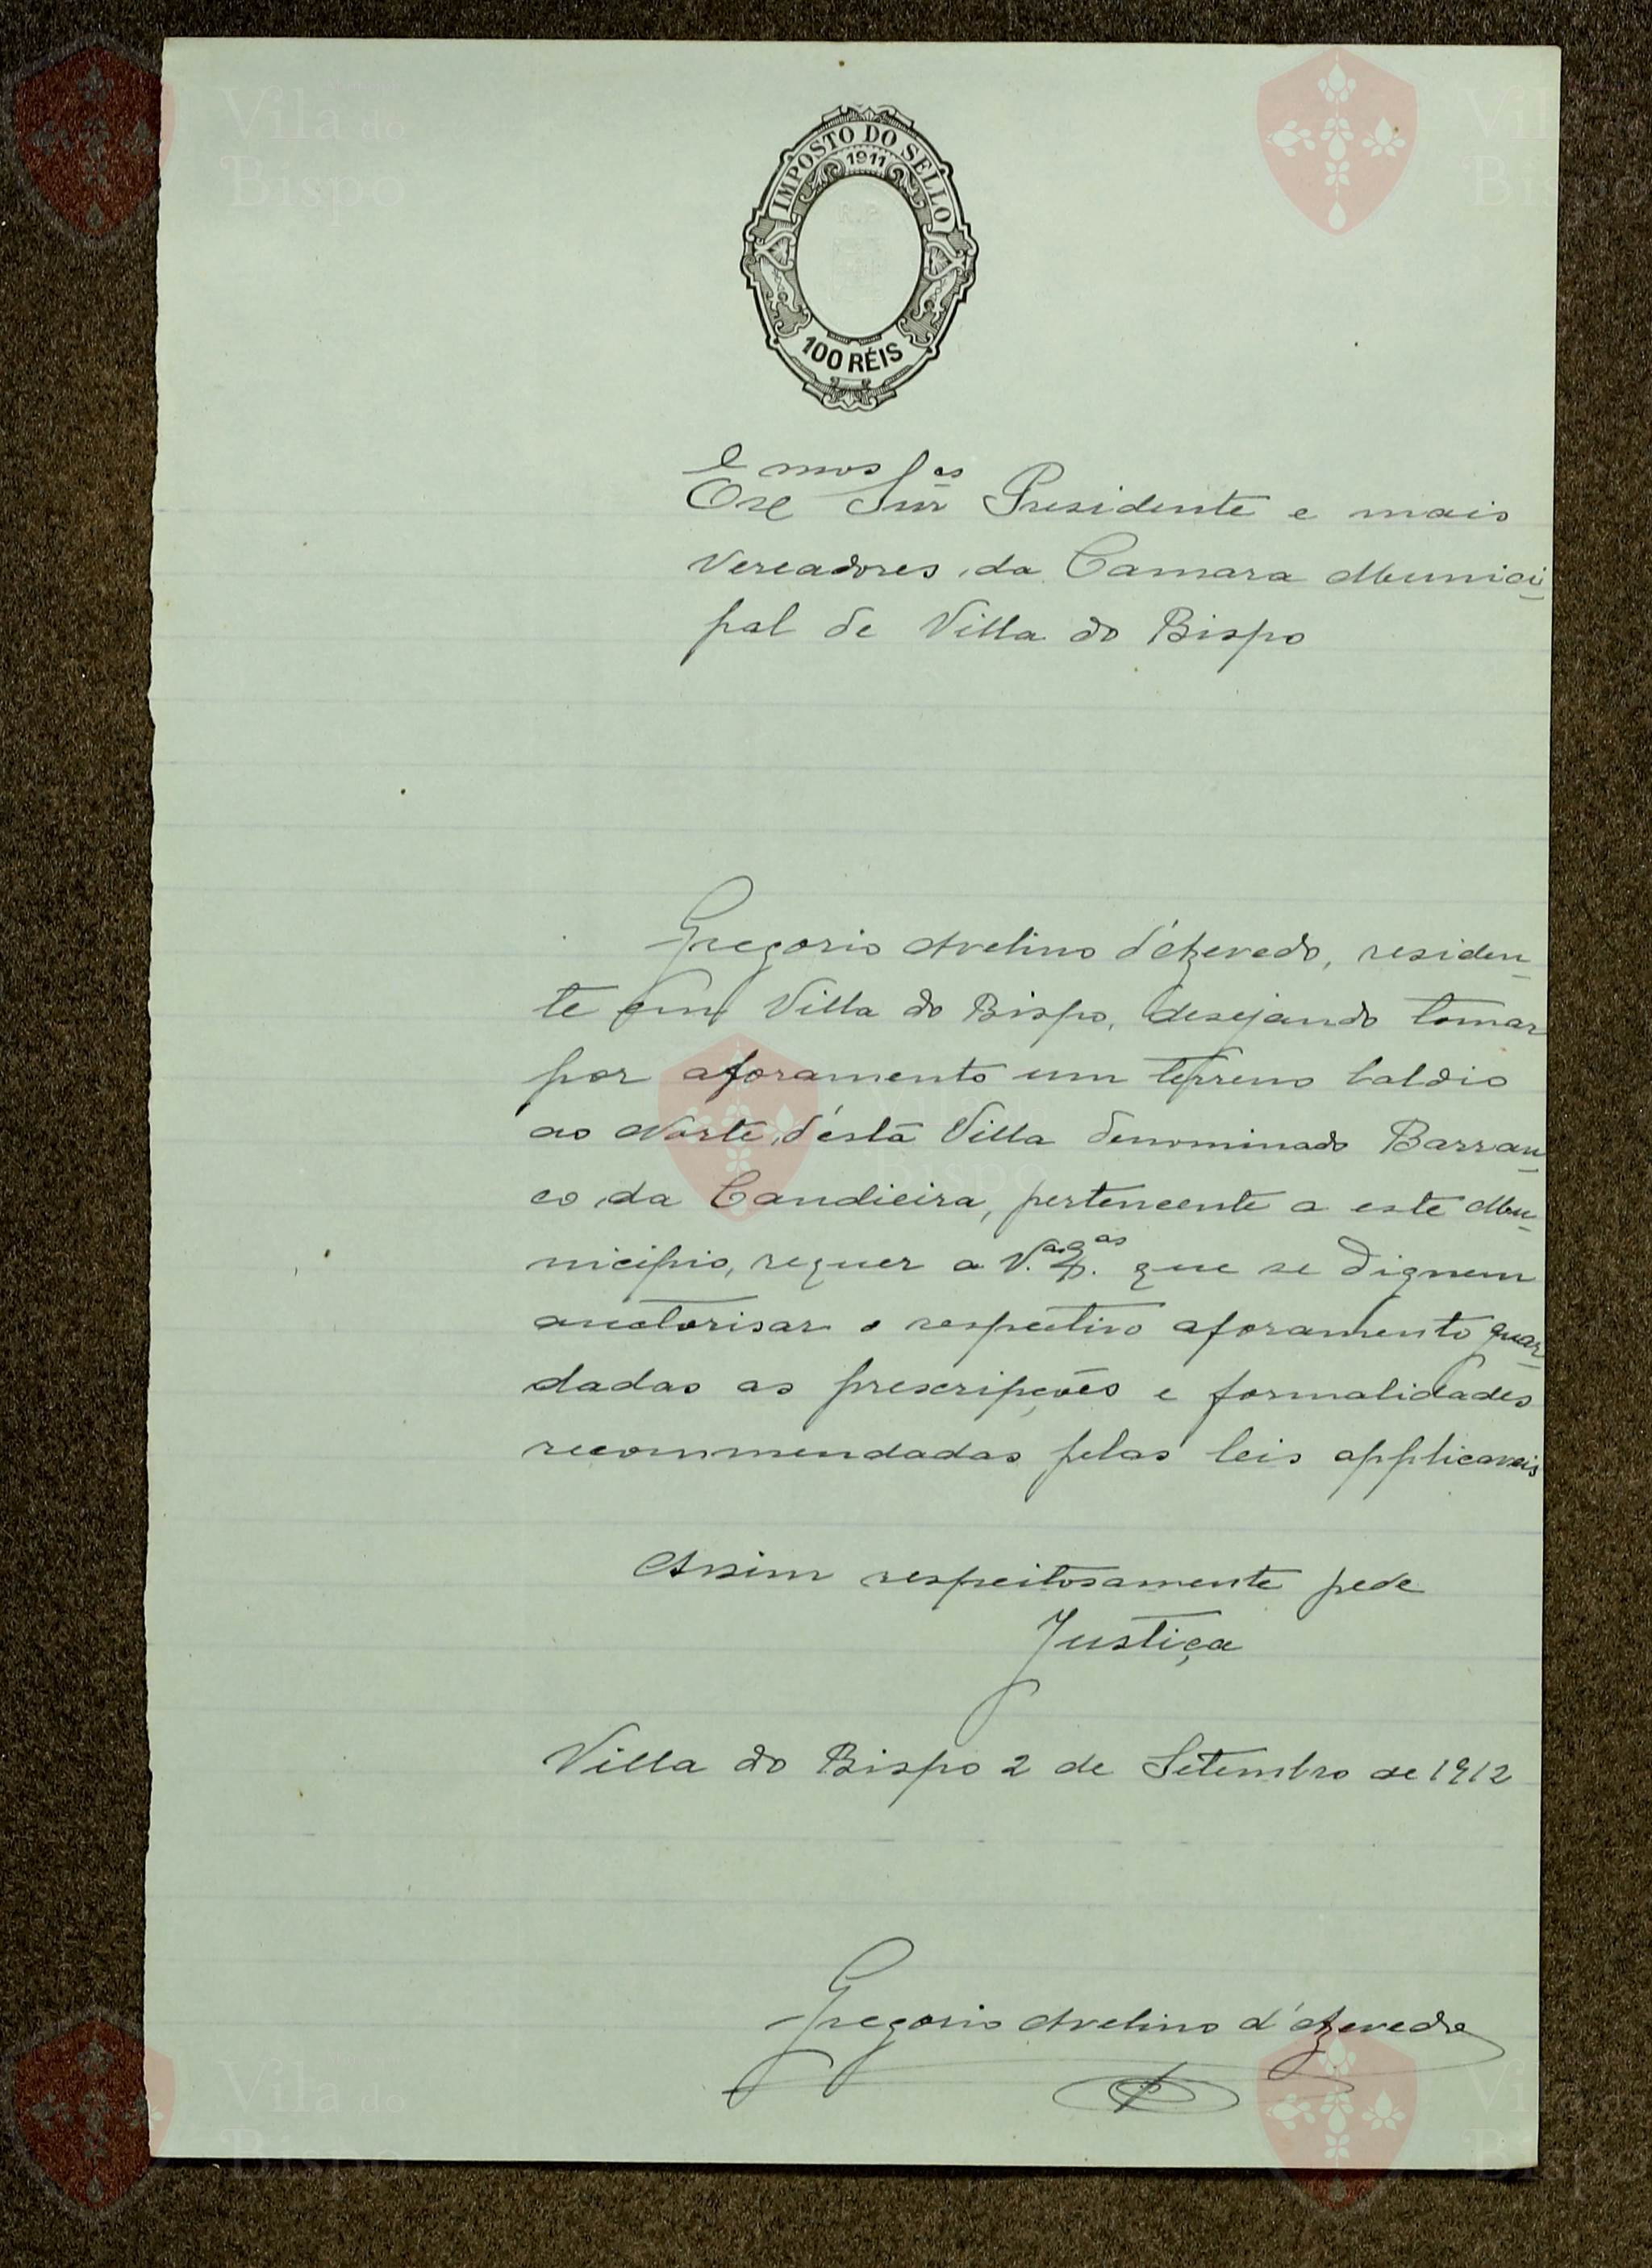 IMPOSTO DO SELLO
1911
R.P.
100 RÉIS
Exmos Snres Presidente e mais
Vereadores da Camara Munici-
pal de Villa do Bispo
Gregorio Avelino d'Azevedo, residen-
te em Villa do Bispo, desejando tomar
por aforamento um terreno baldio
ao Norte d'ésta Villa denominado Barran-
co da Candieira, pertencente a este Mu-
nicipio, requer a V.as que se dignem
auctorisar o respectivo aforamento guar-
dadas as prescripções e formalidades
recommendadas pelas leis applicaveis
Assim respeitosamente pede
Justiça
Villa do Bispo 2 de Setembro de 1912
Gregorio Avelino d'Azevedo
Vila do
Bispo
Vila do
Bispo
Vila do
Bispo